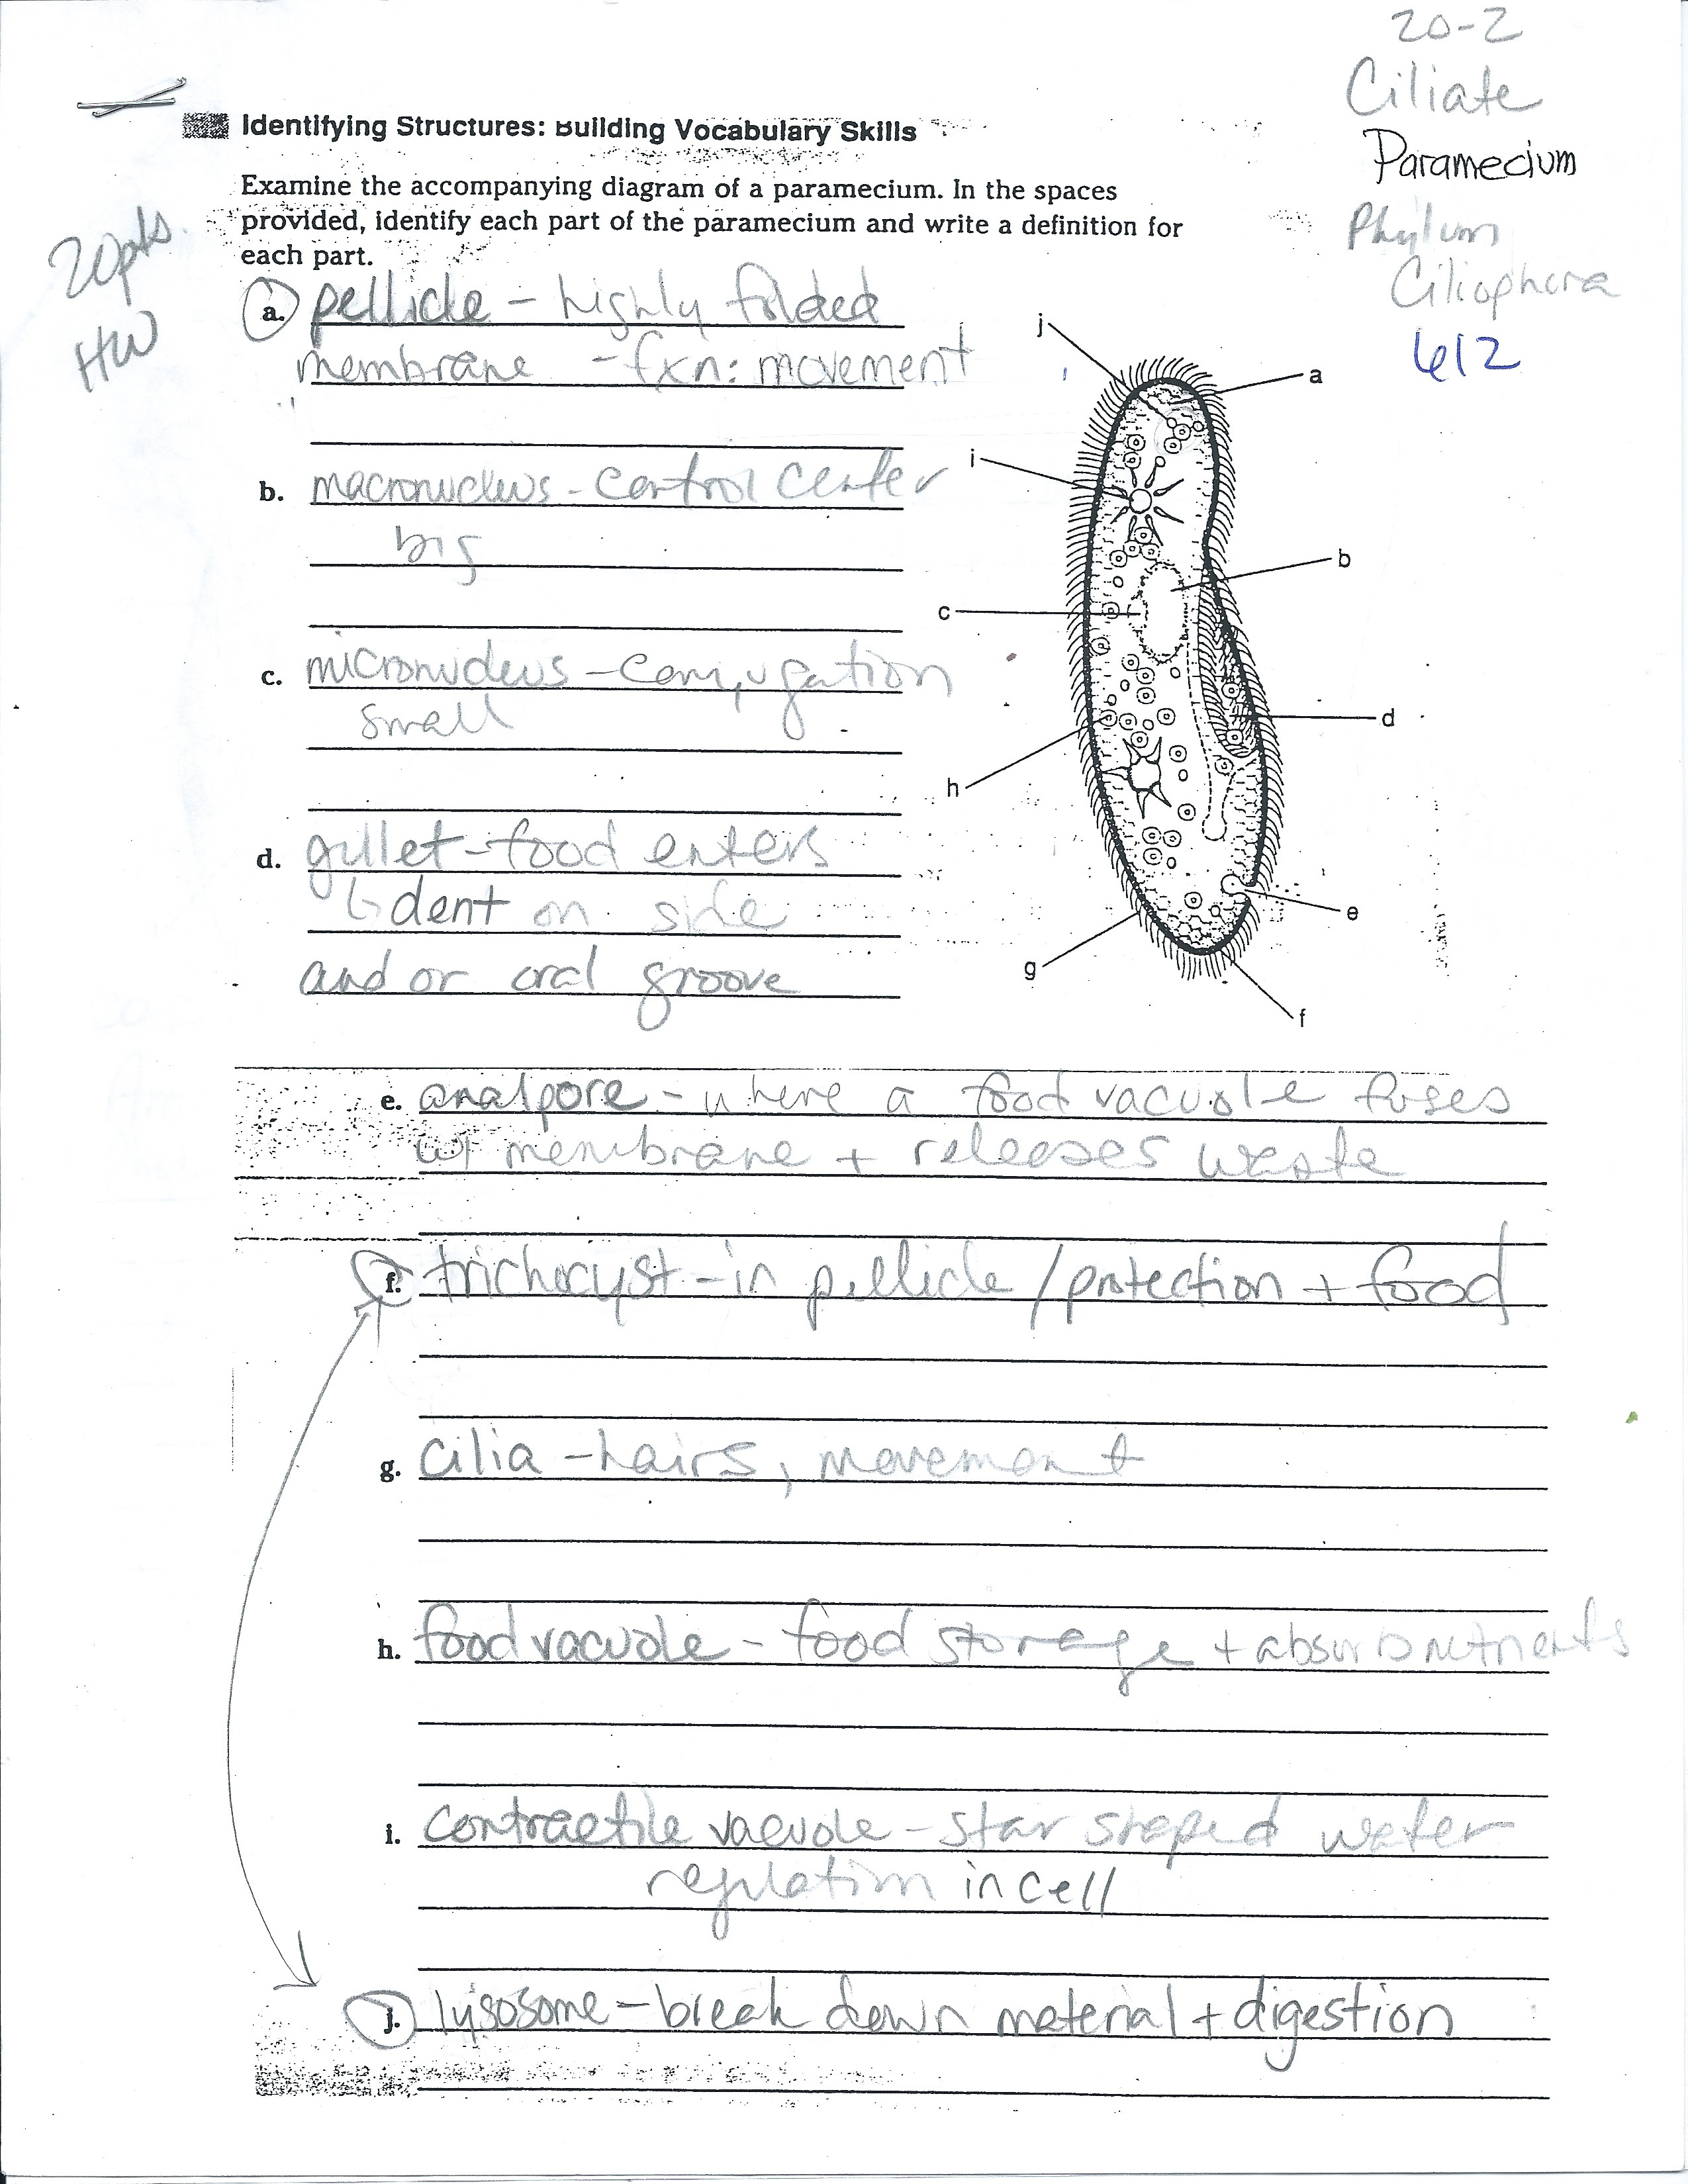 20-2
Ciliate
Paramecium
Phylum
Ciliophora
612
Identifying Structures: Building Vocabulary Skills
Examine the accompanying diagram of a paramecium. In the spaces
provided, identify each part of the paramecium and write a definition for
each part.
20pts.
HW
a. pellicle - highly folded
membrane - fxn: movement
b. macronucleus - control center
big
c. micronucleus - conjugation
small
d. gullet - food enters
↳ dent on side
and or oral groove
j
a
i
b
c
d
h
e
g
f
e. anal pore - where a food vacuole fuses
w/ membrane + releases waste
f. trichocyst - in pellicle / protection + food
g. cilia - hairs, movement
h. food vacuole - food storage + absorb nutrients
i. contractile vacuole - star shaped water
regulation in cell
j. lysosome - break down material + digestion